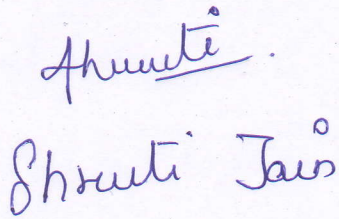 Shruti.
Shruti Jain